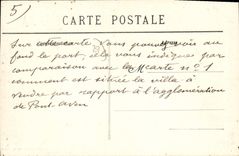 5)
CARTE POSTALE
Sur cette carte, vous pouvez voir au
fond le port, elle vous indiquera par
comparaison avec la carte n° 1
comment est située la villa à
vendre par rapport à l'agglomération
de Pont-Aven